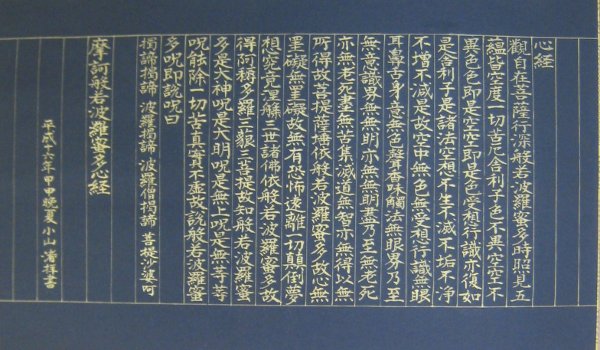 心経
觀自在菩薩行深般若波羅蜜多時照見五
蘊皆空度一切苦厄舍利子色不異空空不
異色色即是空空即是色受想行識亦復如
是舍利子是諸法空想不生不滅不垢不浄
不増不減是故空中無色無受想行識無眼
耳鼻舌身意無色聲香味觸法無眼界乃至
無意識界無無明亦無無明盡乃至無老死
亦無老死盡無苦集滅道無智亦無得以無
所得故菩提薩埵依般若波羅蜜多故心無
罣礙無罣礙故無有恐怖遠離一切顛倒夢
想究竟涅槃三世諸佛依般若波羅蜜多故
得阿耨多羅三藐三菩提故知般若波羅蜜
多是大神呪是大明呪是無上呪是無等等
呪能除一切苦真實不虚故説般若波羅蜜
多呪即説呪曰
掲諦掲諦 波羅掲諦 波羅僧掲諦 菩提沙婆呵
摩訶般若波羅蜜多心経
平成十六年甲申晩夏 小山 書